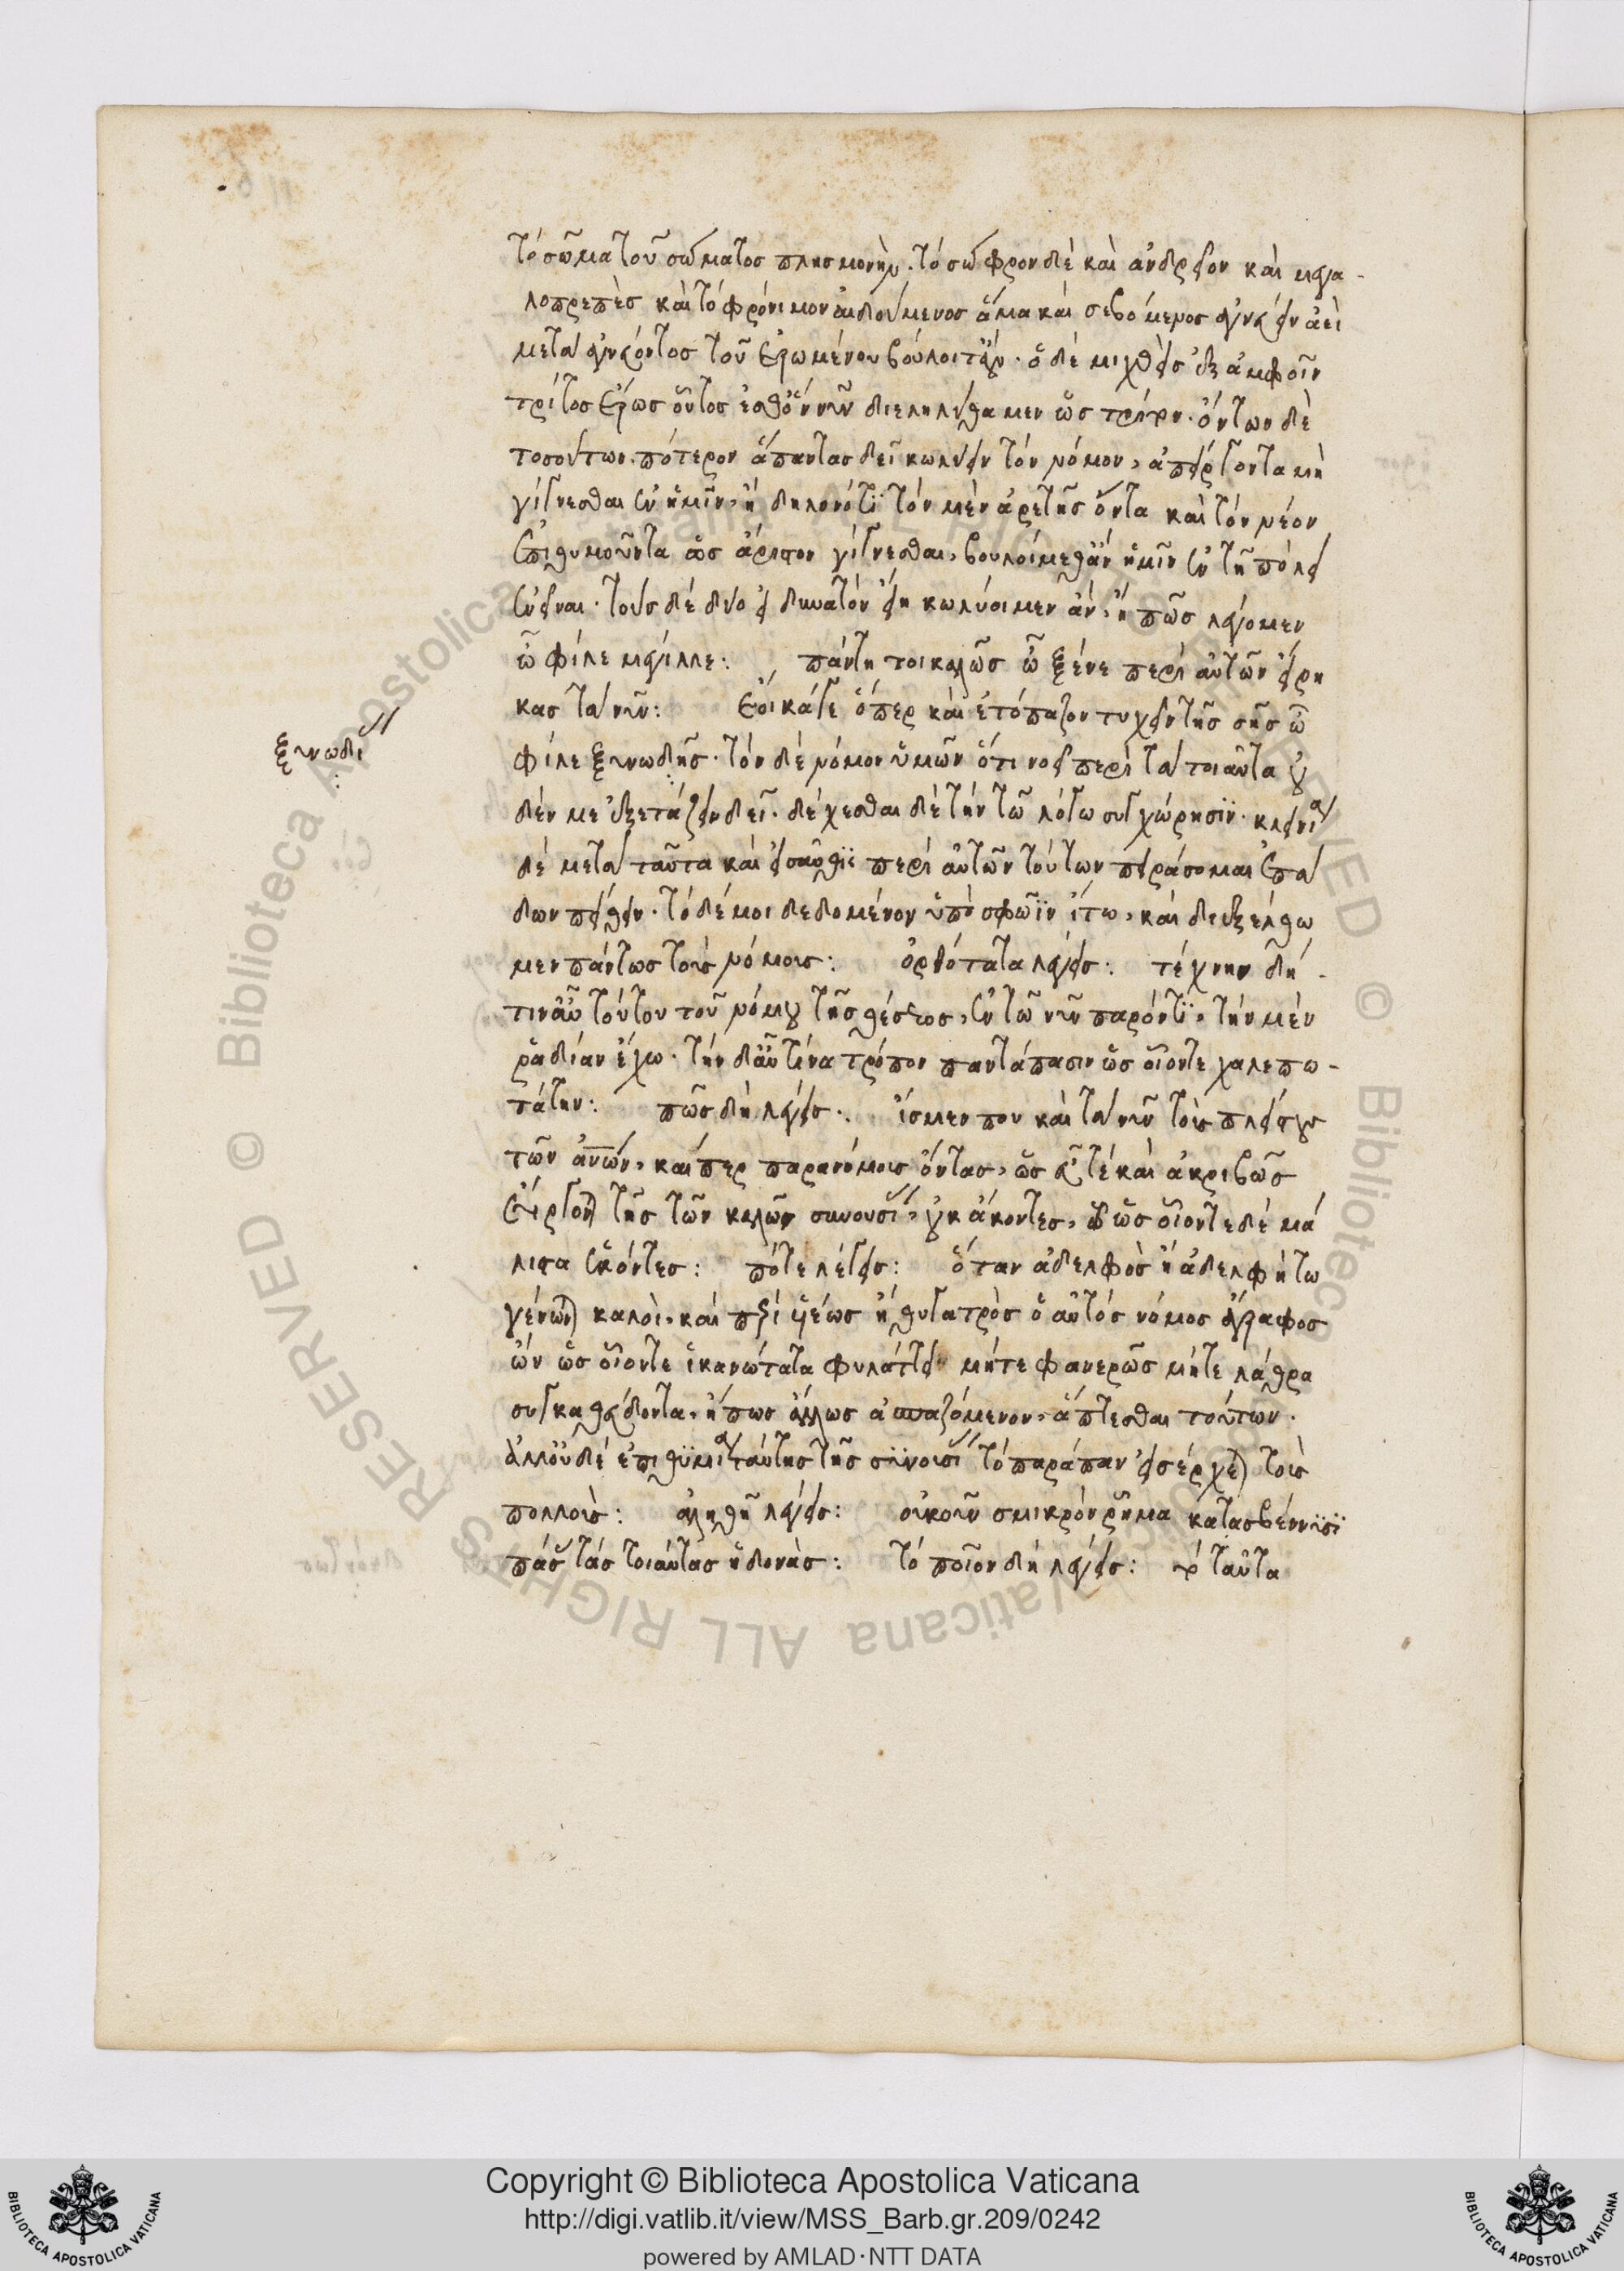 τὸ σῶμα τοῦ σώματος πλησμονὴν. τὸ σῶφρον δὲ καὶ ἀνδρεῖον καὶ μεγα-
λοπρεπὲς καὶ τὸ φρόνιμον αἰδούμενος ἅμα καὶ σεβόμενος ἁγνεύειν ἀεὶ
μετὰ ἁγνεύοντος τοῦ ἐρωμένου βούλοιτ' ἄν. ὁ δὲ μιχθεὶς ἐξ ἀμφοῖν
τρίτος ἔρως οὗτος ἔσθ' ὃν νῦν διεληλύθαμεν ὡς τρίτον. ὄντων δὲ
τοσούτων. πότερον ἅπαντας δεῖ κωλύειν τὸν νόμον, ἀπείργοντα μὴ
γίγνεσθαι ἐν ἡμῖν, ἢ δηλονότι τὸν μὲν ἀρετῆς ὄντα καὶ τὸν νέον
ἐπιθυμοῦντα ὡς ἄριστον γίγνεσθαι, βουλοίμεθ' ἂν ἡμῖν ἐν τῇ πόλει
ἐνεῖναι. τοὺς δὲ δύο εἰ δυνατὸν εἴη κωλύοιμεν ἄν, ἢ πῶς λέγομεν
ὦ φίλε μέγιλλε: πάντη τοι καλῶς ὦ ξένε περὶ αὐτῶν εἴρη
κας τὰ νῦν: ἔοικά γε ὅπερ καὶ ἐτόπαζον τυχεῖν τῆς σῆς ὦ
φίλε ξυνωδῆς. τὸν δὲ νόμον ὑμῶν ὅ τι νοεῖ περὶ τὰ τοιαῦτα οὐ
ξυνωδι
δέν με ἐξετάζειν δεῖ. δέχεσθαι δὲ τὴν τῷ λόγῳ συγχώρησιν. κλεινία
δὲ μετὰ ταῦτα καὶ εἰσαῦθις περὶ αὐτῶν τούτων πειράσομαι ἐπᾴ
δων πείθειν. τὸ δέ μοι δεδομένον ὑπὸ σφῷν ἴτω, καὶ διεξέλθω
μεν πάντως τοὺς νόμους: ὀρθότατα λέγεις: τέχνην δή
τιν' αὖ τούτου τοῦ νόμου τῆς θέσεως, ἐν τῷ νῦν παρόντι, τὴν μὲν
ῥᾳδίαν ἔχω. τὴν δ' αὖ τινα τρόπον παντάπασιν ὡς οἷόν τε χαλεπω-
τάτην: πῶς δὴ λέγεις. ἴσμεν που καὶ τὰ νῦν τοὺς πλείστους
τῶν ἀνων, καίπερ παρανόμους ὄντας, ὡς εὖ τε καὶ ἀκριβῶς
εἴργονται τῆς τῶν καλῶν συνουσίας, οὐκ ἄκοντες, ὡς οἷόν τε δὲ μά
λιστα ἑκόντες: πότε λέγεις: ὅταν ἀδελφὸς ἢ ἀδελφή τω
γένωνται καλοὶ. καὶ περὶ υἱέως ἢ θυγατρὸς ὁ αὐτὸς νόμος ἄγραφος
ὢν ὡς οἷόν τε ἱκανώτατα φυλάττει μήτε φανερῶς μήτε λάθρα
συγκαθεύδοντα, ἤ πως ἄλλως ἀσπαζόμενον, ἅπτεσθαι τούτων.
ἀλλ' οὐδὲ ἐπιθυμία ταύτης τῆς συνουσίας τὸ παράπαν εἰσέρχεται τοὺς
πολλούς: ἀληθῆ λέγεις: οὐκοῦν σμικρὸν ῥῆμα κατασβέννυσι
πάσας τὰς τοιαύτας ἡδονὰς: τὸ ποῖον δὴ λέγεις: τὸ ταῦτα
Copyright © Biblioteca Apostolica Vaticana
http://digi.vatlib.it/view/MSS_Barb.gr.209/0242
powered by AMLAD·NTT DATA